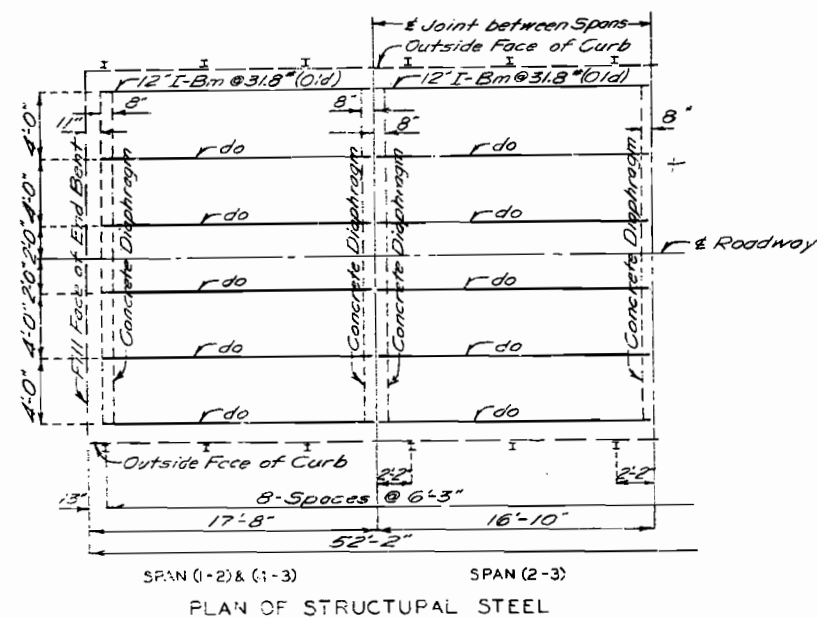 ℄ Joint between Spans
Outside Face of Curb
I I I I I
12" I-Bm @ 31.8# (Old) 12" I-Bm @ 31.8# (Old)
8" 8" 8" 8"
11"
4'-0" 4'-0" 2'-0" 2'-0" 4'-0" 4'-0"
Fill Face of End Bent
Concrete Diaphragm
Concrete Diaphragm
Concrete Diaphragm
Concrete Diaphragm
do do
do do
℄ Roadway
do do
do do
do do
I I I I I I
Outside Face of Curb
2'-2" 2'-2"
13" 8-Spaces @ 6'-3"
17'-8" 16'-10"
52'-2"
SPAN (1-2) & (-3) SPAN (2-3)
PLAN OF STRUCTURAL STEEL